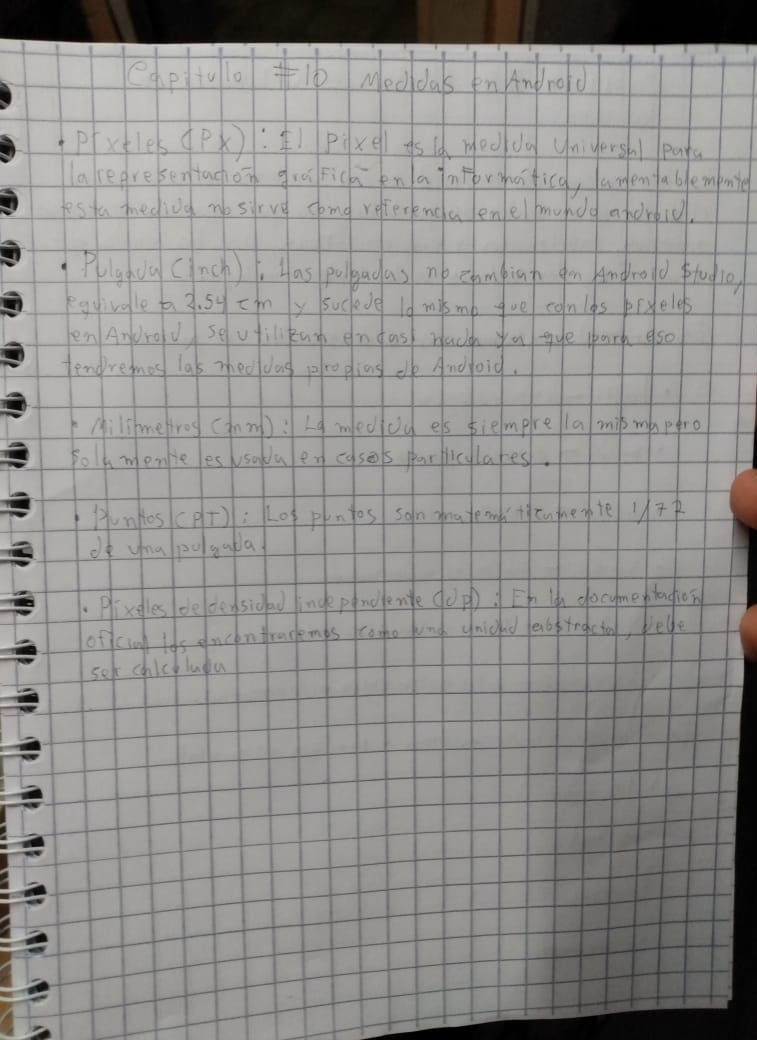 Capitulo #10 Medidas en Android
• Píxeles (PX): El Pixel es la medida Universal para
la representación gráfica en la informática, lamentablemente
esta medida no sirve como referencia en el mundo android.
• Pulgada (inch): Las pulgadas no cambian en Android Studio,
equivale a 2.54 cm y sucede lo mismo que con los píxeles
en Android, se utilizan en casi nada ya que para eso
tendremos las medidas propias de Android.
• Milímetros (mm): La medida es siempre la misma pero
solamente es usada en casos particulares.
• Puntos (PT): Los puntos son matemáticamente 1/72
de una pulgada.
• Píxeles de densidad independiente (dp): En la documentación
oficial los encontraremos como una unidad abstracta, debe
ser calculada